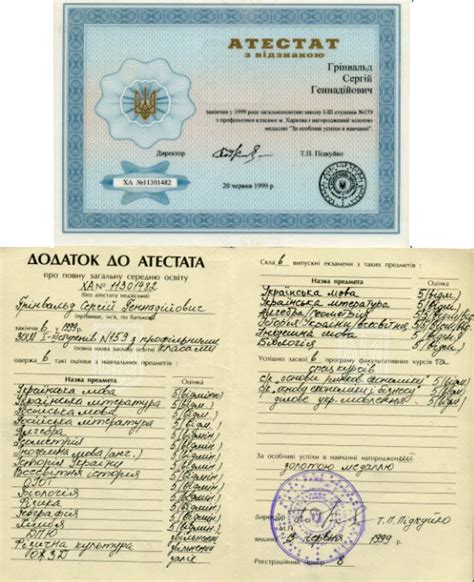 АТЕСТАТ
з відзнакою
Грінвальд
Сергій
Геннадійович
закінчив у 1999 році загальноосвітню школу І-ІІІ ступенів №159
з профільними класами м. Харкова і нагороджений золотою
медаллю "За особливі успіхи в навчанні"
Директор Т.П. Підкуйко
ХА №11301482
20 червня 1999 р.
ДОДАТОК ДО АТЕСТАТА
про повну загальну середню освіту
ХА № 11301482
(без атестата недійсний)
Грінвальд Сергій Геннадійович
(прізвище, ім'я, по батькові)
закінчив 1999
ЗОШ І-ІІІ ступенів №159 з профільними
класами
(повна назва закладу)
одержав такі оцінки з навчальних предметів:
Назва предмета Оцінка
Українська мова 5 (відмінно)
Українська література 5 (відм.)
Російська мова 5 (відм.)
Російська література 5 (відм.)
Алгебра 5 (відмін)
Геометрія 5 (відмін)
Іноземна мова (анг.) 5 (відм.)
Історія України 5 (відмін)
Всесвітня історія 5 (відмін)
ОІОТ 5 (відм.)
Біологія 5 (відмін)
Фізика 5 (відмін)
Географія 5 (відмін)
Хімія 5 (відмін)
ДПЮ звільнений
Фізична культура звільнений
ОЖЗД залік
Склав випускні екзамени з таких предметів:
Назва предмета Оцінка
Українська мова 5 (відм.)
Українська література 5 (відм.)
Алгебра 5 (відм.)
Історія України 5 (відм.)
Іноземна мова 5 (відм.)
Біологія 5 (відм.)
Успішно засвоїв програму факультативних курсів та
спецкурсів
Назва предмета Оцінка
с/к "основи економіки 5 (відм.)
с/к 5 (відм.)
ділове укр. мовлення 5 (відм.)
За особливі успіхи в навчанні нагороджений
золотою медаллю
Директор Т.П. Підкуйко
червня 1999
Реєстраційний № 8